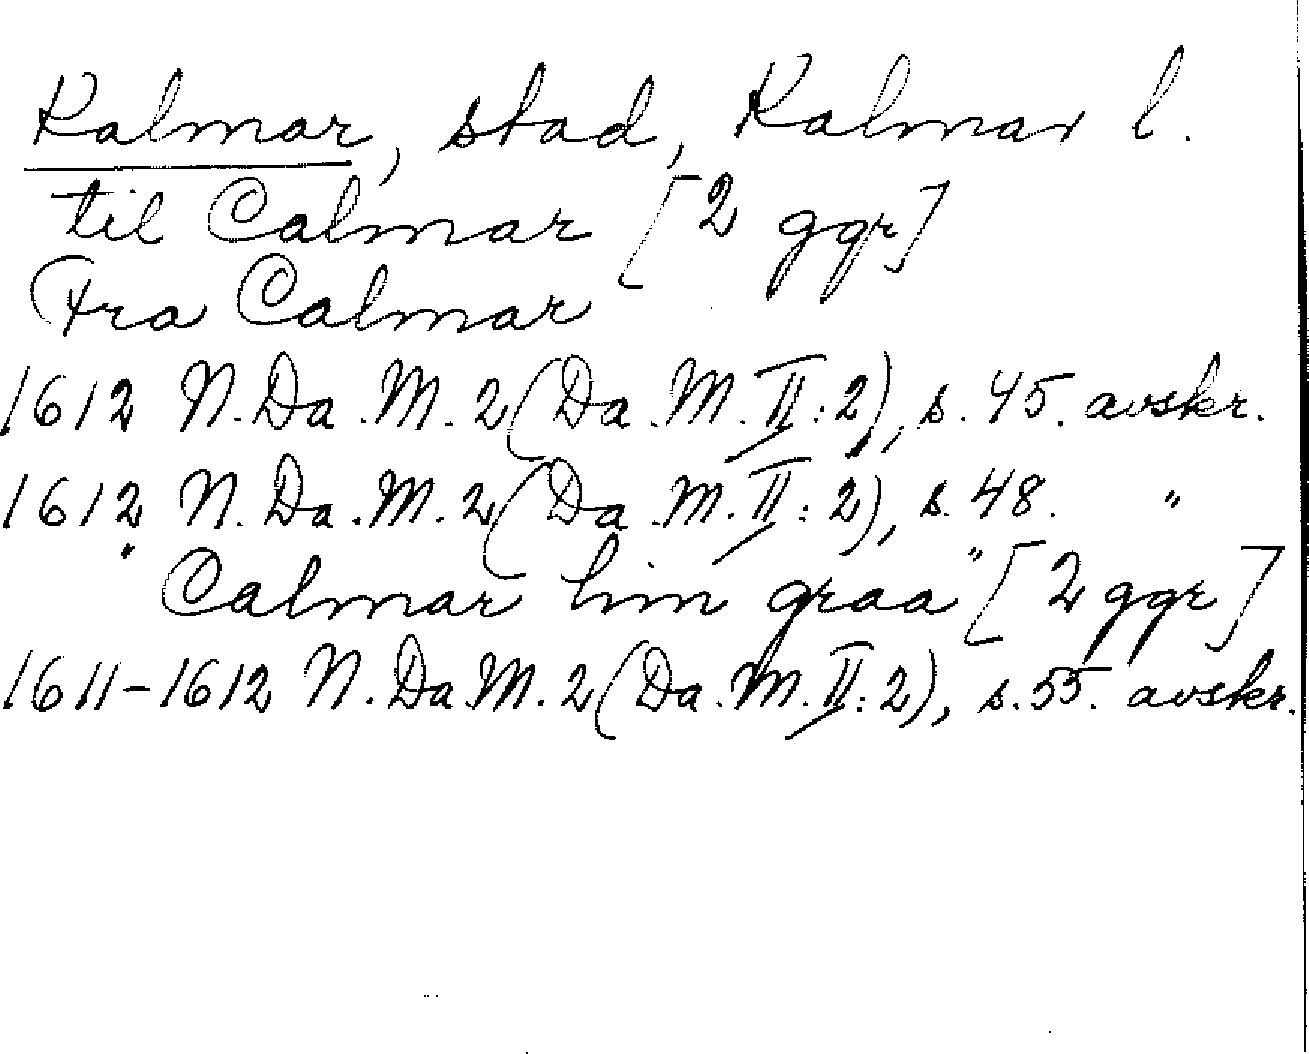 Kalmar, stad, Kalmar l.
til Calmar [2 ggr]
Fra Calmar
1612 N. Da. M. 2 (Da. M. II: 2), s. 45. avskr.
1612 N. Da. M. 2 (Da. M. II: 2), s. 48. "
"Calmar hin graa" [2 ggr]
1611-1612 N. Da. M. 2 (Da. M. II: 2), s. 55. avskr.